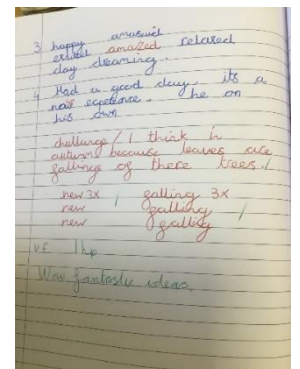 3 happy amasuid
exsited amazed relaxed
day dreaming.
4 Had a good day. its a
he on
his own
challenge / I think in
autumn because leaves are
falling of there trees. /
new 3x / falling 3x
new falling /
new falling
V.F 1hp
Wow fantastic ideas.